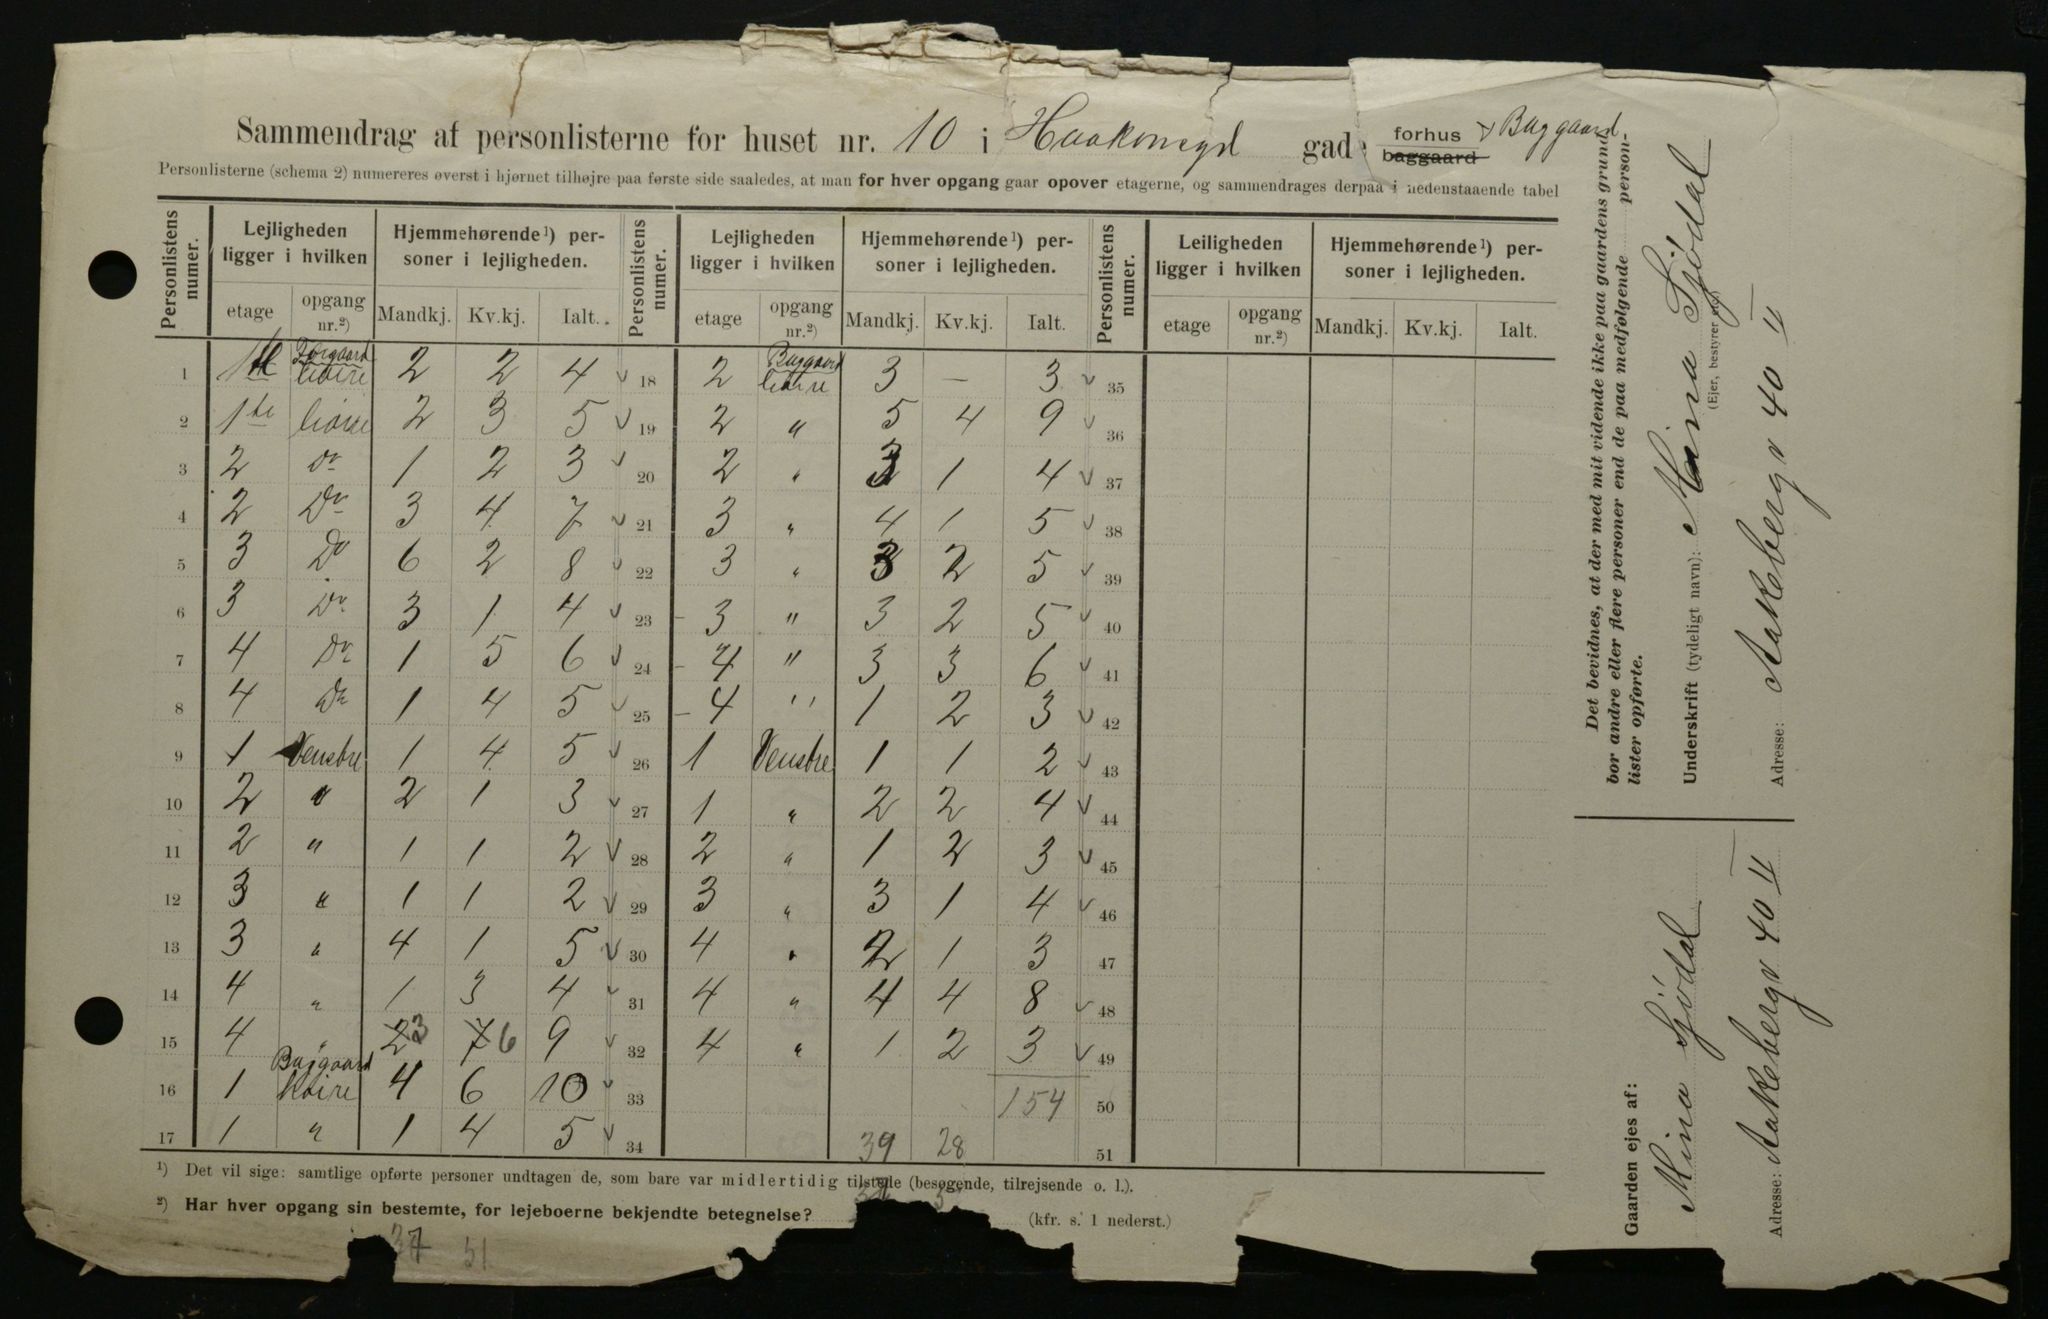 Sammendrag af personlisterne for huset nr. 10 i Haakonsgd gade forhus + Baggaard
baggaard
Personlisterne (schema 2) numereres øverst i hjørnet tilhøjre paa første side saaledes, at man for hver opgang gaar opover etagerne, og sammendrages derpaa i nedenstaaende tabel
Personlistens numer. Lejligheden ligger i hvilken Hjemmehørende¹) personer i lejligheden. Personlistens numer. Lejligheden ligger i hvilken Hjemmehørende¹) personer i lejligheden. Personlistens numer. Leiligheden ligger i hvilken Hjemmehørende¹) personer i lejligheden.
etage opgang nr.²) Mandkj. Kv.kj. Ialt. etage opgang nr.²) Mandkj. Kv.kj. Ialt. etage opgang nr.²) Mandkj. Kv.kj. Ialt.
1 1ste Forgaard høire 2 2 4 v 18 2 Baggaard høire 3 — 3 v 35
2 1te høire 2 3 5 v 19 2 " 5 4 9 v 36
3 2 Do 1 2 3 v 20 2 " 3 1 4 v 37
4 2 Do 3 4 7 v 21 3 " 4 1 5 v 38
5 3 Do 6 2 8 v 22 3 " 3 2 5 v 39
6 3 Do 3 1 4 v 23 3 " 3 2 5 v 40
7 4 Do 1 5 6 v 24 4 " 3 3 6 v 41
8 4 Do 1 4 5 v 25 4 " 1 2 3 v 42
9 1 Venstre 1 4 5 v 26 1 Venstre 1 1 2 v 43
10 2 " 2 1 3 v 27 1 " 2 2 4 v 44
11 2 " 1 1 2 v 28 2 " 1 2 3 v 45
12 3 " 1 1 2 v 29 3 " 3 1 4 v 46
13 3 " 4 1 5 v 30 4 " 2 1 3 47
14 4 " 1 3 4 v 31 4 " 4 4 8 v 48
15 4 " 2 3 7 6 9 v 32 4 " 1 2 3 v 49
16 1 Baggaard høire 4 6 10 v 33 154 50
17 1 " 1 4 5 v 34 39 28 51
¹) Det vil sige: samtlige opførte personer undtagen de, som bare var midlertidig tilstede (besøgende, tilrejsende o. l.).
²) Har hver opgang sin bestemte, for lejeboerne bekjendte betegnelse? (kfr. s. 1 nederst.)
37 51
Det bevidnes, at der med mit vidende ikke paa gaardens grund
bor andre eller flere personer end de paa medfølgende person-
lister opførte.
Underskrift (tydeligt navn): Mina Sjødal
(Ejer, bestyrer
Adresse: Aakebergv 40 II
Gaarden ejes af:
Mina Sjødal
Adresse: Aakebergv 40 II